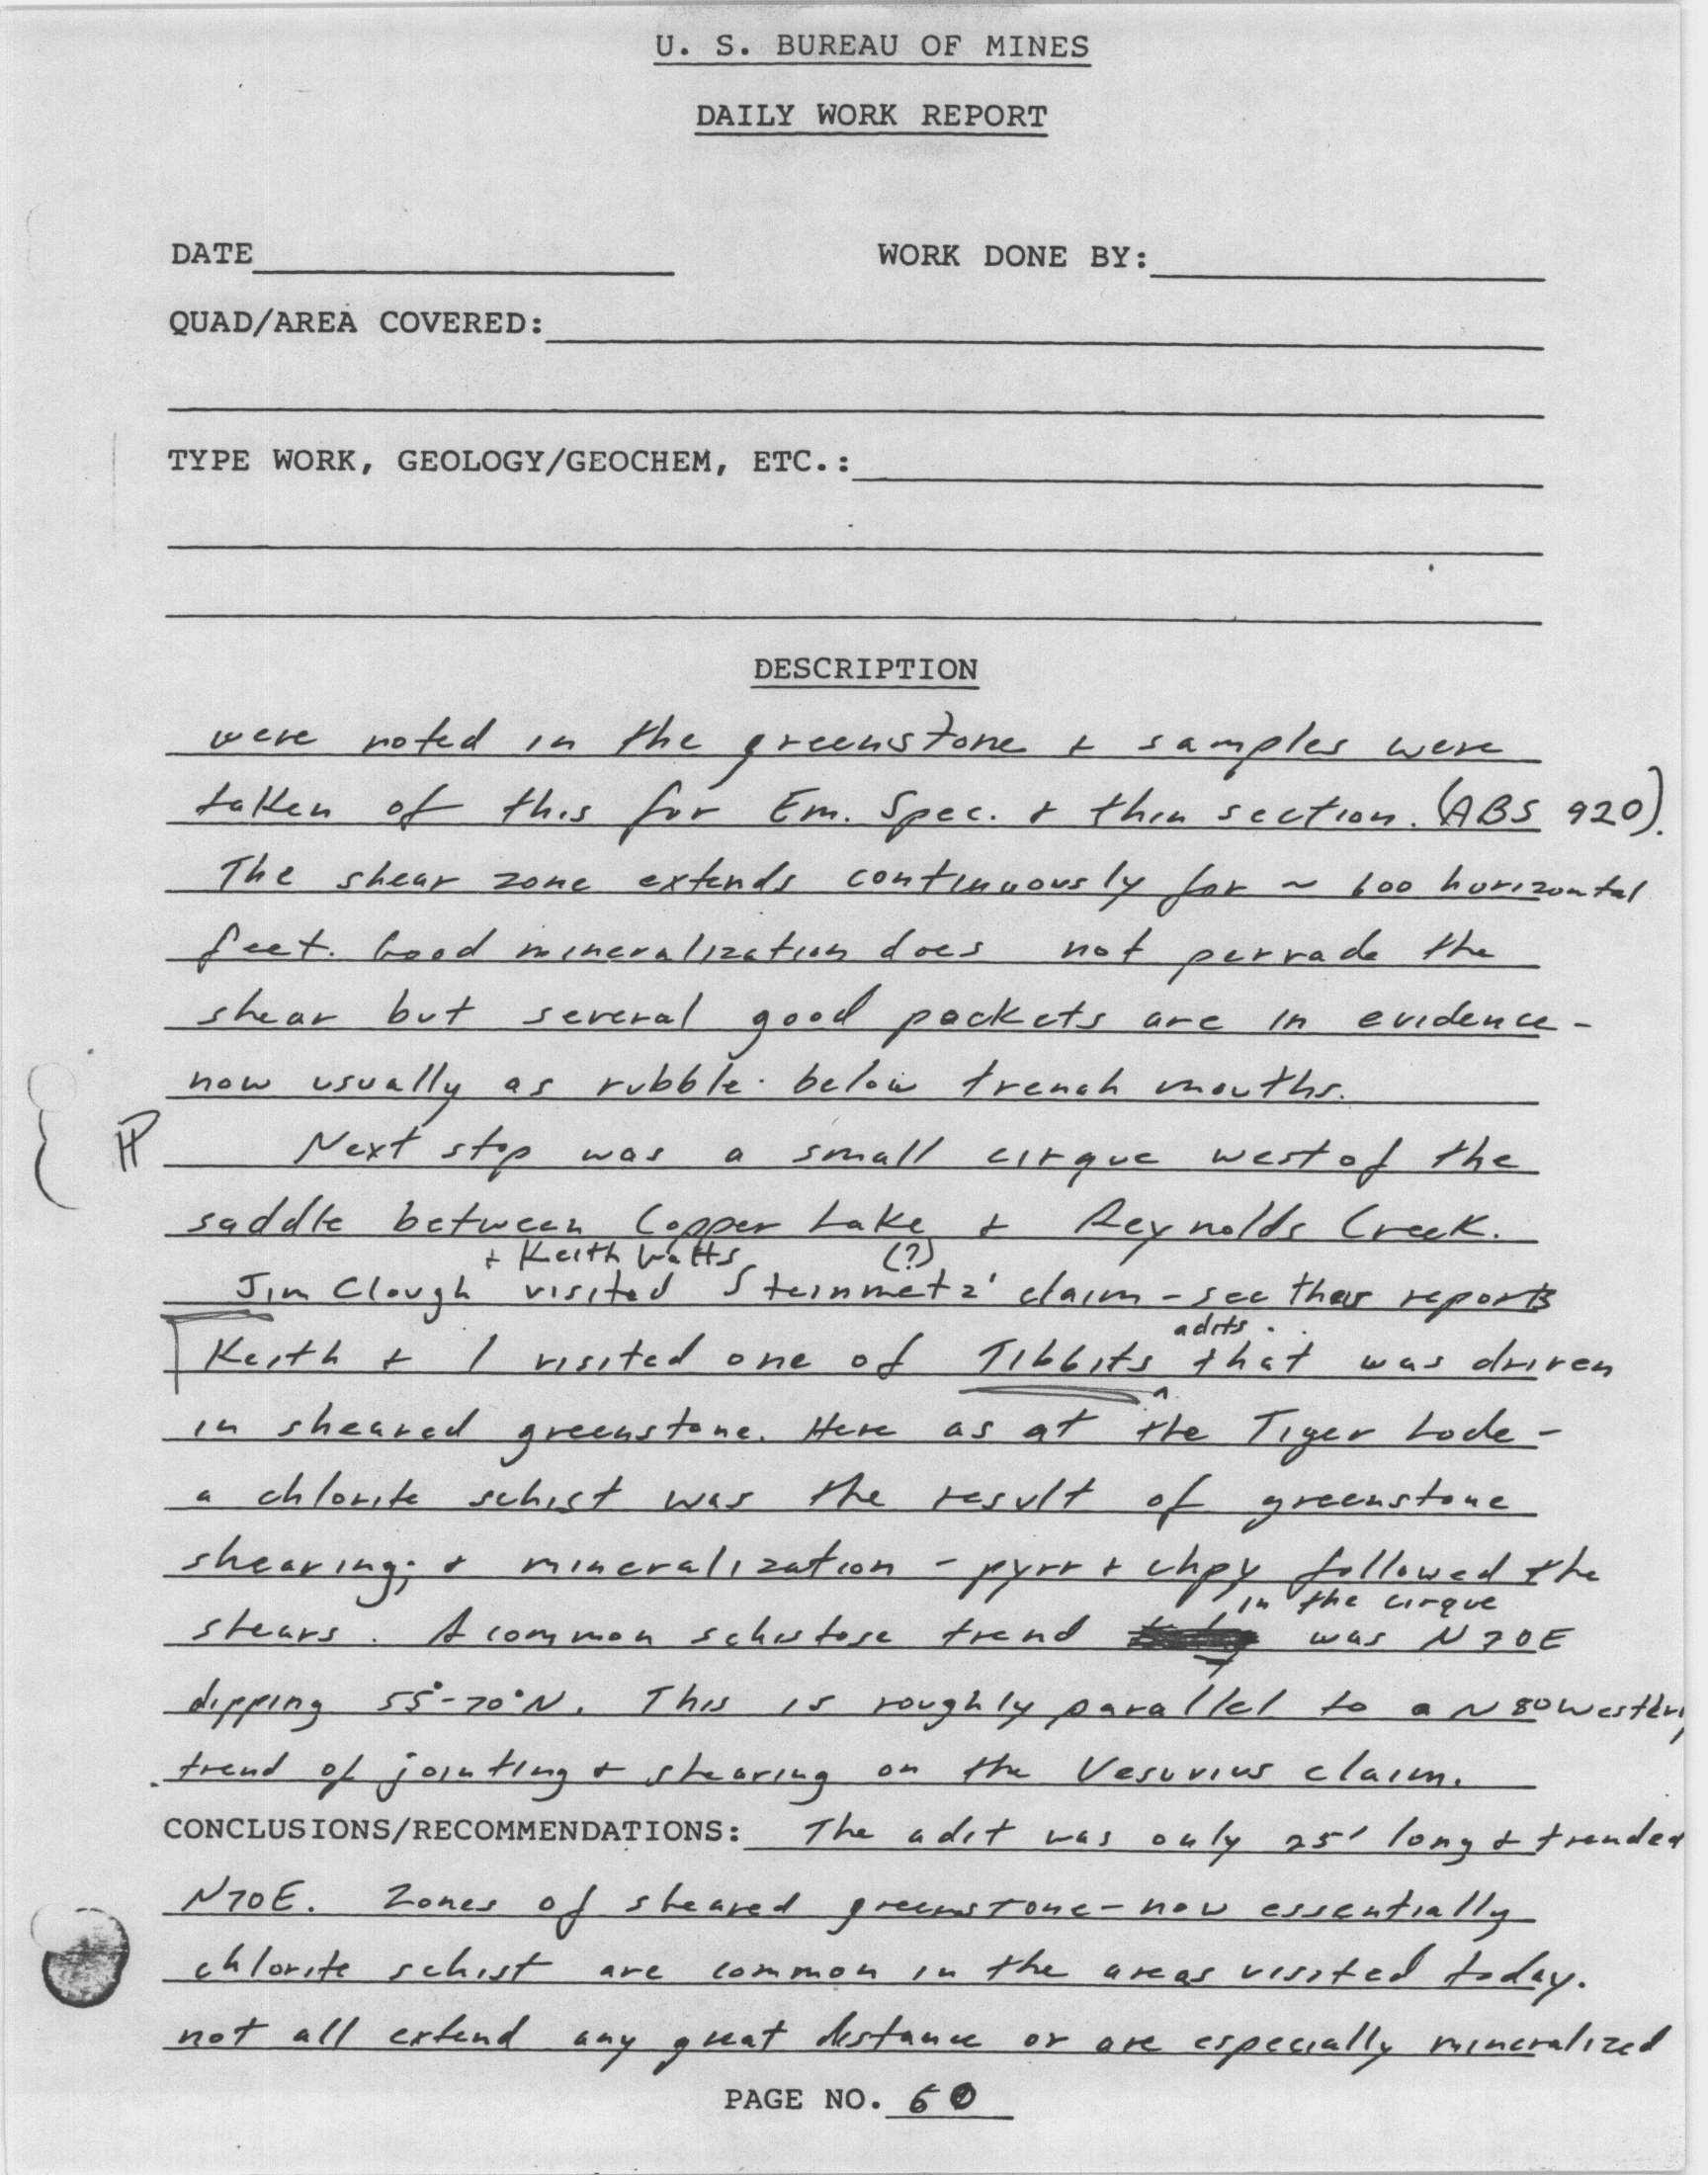 U. S. BUREAU OF MINES
DAILY WORK REPORT
DATE WORK DONE BY:
QUAD/AREA COVERED:
TYPE WORK, GEOLOGY/GEOCHEM, ETC.:
DESCRIPTION
were noted in the greenstone + samples were
taken of this for Em. Spec. + thin section. (ABS 920).
The shear zone extends continuously for ~ 600 horizontal
feet. Good mineralization does not pervade the
shear but several good pockets are in evidence -
now usually as rubble below trench mouths.
Next stop was a small cirque west of the
saddle between Copper Lake + Reynolds Creek.
+ Keith Watts (?)
Jim Clough visited Steinmetz' claim - see their reports
adits
Keith + I visited one of Tibbits ^ that was driven
in sheared greenstone. Here as at the Tiger Lode -
a chlorite schist was the result of greenstone
shearing; + mineralization - pyrr + chpy followed the
in the cirque
shears. A common schistose trend was N70E
dipping 55°-70°N. This is roughly parallel to a N80 westerly
trend of jointing + shearing on the Vesuvius claim.
CONCLUSIONS/RECOMMENDATIONS: The adit was only 25' long + trended
N70E. Zones of sheared greenstone - now essentially
chlorite schist are common in the areas visited today.
not all extend any great distance or are especially mineralized
PAGE NO. 60